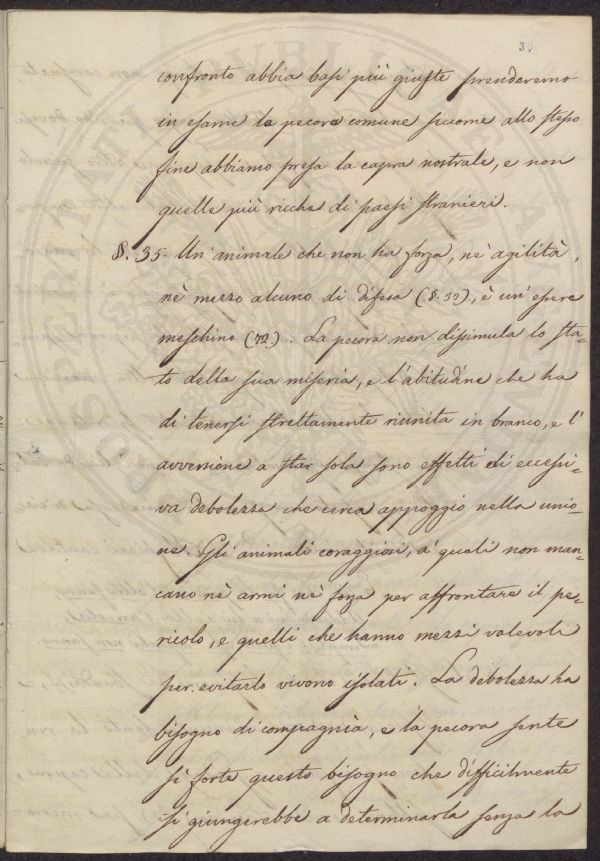 30
confronto abbia basi più giuste prenderemo
in esame la pecora comune siccome allo stesso
fine abbiamo presa la capra nostrale, e non
quelle più ricche di paesi stranieri.
§. 35. Un' animale che non ha forza, nè agilità,
nè mezzo alcuno di difesa (§. 32), è un' essere
meschino (72). La pecora non dissimula lo sta-
to della sua miseria, e l'abitudine che ha
di tenersi strettamente riunita in branco, e l'
avversione a star sola sono effetti di eccessi-
va debolezza che cerca appoggio nella unio-
ne. Gli animali coraggiosi, a' quali non man-
cano nè armi nè forza per affrontare il pe-
ricolo, e quelli che hanno mezzi valevoli
per evitarlo vivono isolati. La debolezza ha
bisogno di compagnia, e la pecora sente
sì forte questo bisogno che difficilmente
si giungerebbe a determinarla senza la